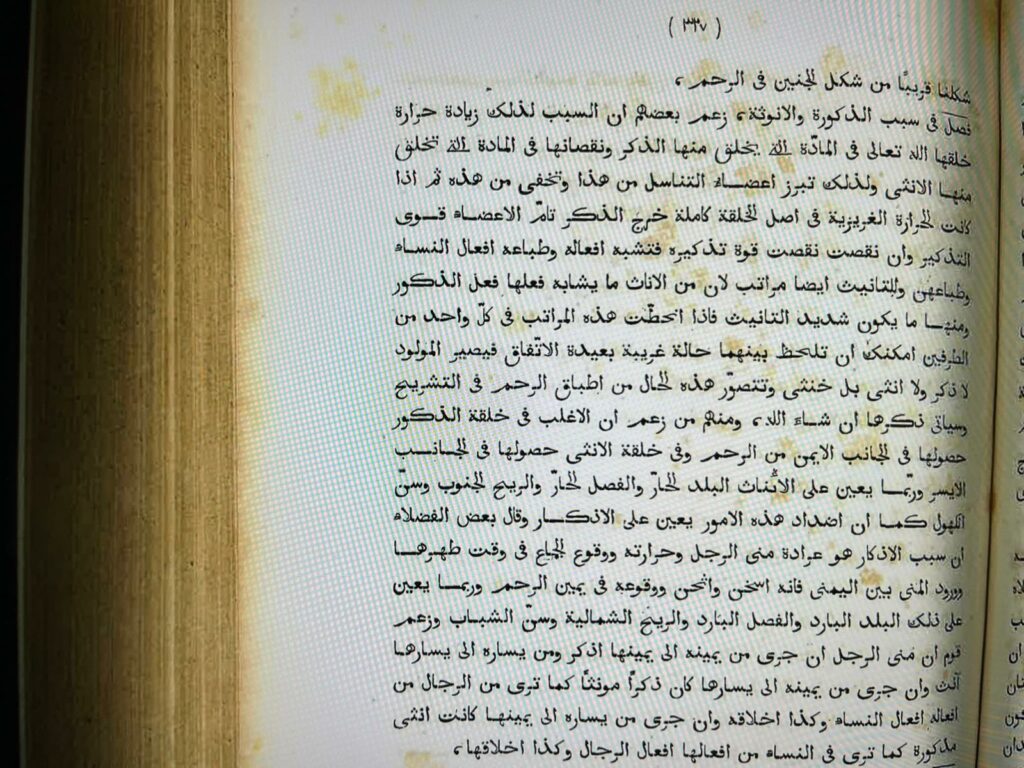 ( ٣٣٧ )
شكلها قريبًا من شكل الجنين فى الرحم،
فصل فى سبب الذكورة والانوثة، زعم بعضهم ان السبب لذلك زيادة حرارة
خلقها الله تعالى فى المادّة التى يخلق منها الذكر ونقصانها فى المادة التى تخلق
منها الانثى ولذلك تبرز اعضاء التناسل من هذا وتخفى من هذه ثم اذا
كانت الحرارة الغريزية فى اصل الخلقة كاملة خرج الذكر تامّ الاعضاء قوى
التذكير وان نقصت نقصت قوة تذكيره فتشبه افعاله وطباعه افعال النساء
وطباعهن وللتانيث ايضا مراتب لان من الاناث ما يشابه فعلها فعل الذكور
ومنها ما يكون شديد التانيث فاذا انحطّت هذه المراتب فى كلّ واحد من
الطرفين امكنك ان تلحظ بينهما حالة غريبة بعيدة الاتّفاق فيصير المولود
لا ذكر ولا انثى بل خنثى وتتصوّر هذه الحال من اطباق الرحم فى التشريح
وسياتى ذكرها ان شاء الله، ومنهم من زعم ان الاغلب فى خلقة الذكور
حصولها فى الجانب الايمن من الرحم وفى خلقة الانثى حصولها فى الجانب
الايسر وربّما يعين على الاناث البلد الحارّ والفصل الحارّ والريح الجنوب وسنّ
الكهول كما ان اضداد هذه الامور يعين على الاذكار وقال بعض الفضلاء
ان سبب الاذكار هو عرادة منى الرجل وحرارته ووقوع الجماع فى وقت طهرها
وورود المنى بين اليمنى فانه اسخن واثخن ووقوعه فى يمين الرحم وربما يعين
على ذلك البلد البارد والفصل البارد والريح الشمالية وسنّ الشباب وزعم
قوم ان منى الرجل ان جرى من يمينه الى يمينها اذكر ومن يساره الى يسارها
آنث وان جرى من يمينه الى يسارها كان ذكراً مونثاً كما ترى من الرجال من
افعاله افعال النساء وكذا اخلاقه وان جرى من يساره الى يمينها كانت انثى
مذكورة كما ترى فى النساء من افعالها افعال الرجال وكذا اخلاقها،